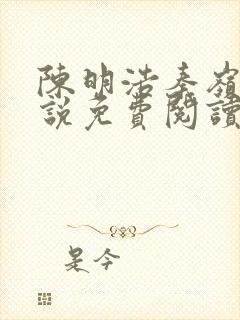 陳明浩秦嶺
說免費閱讀
是今